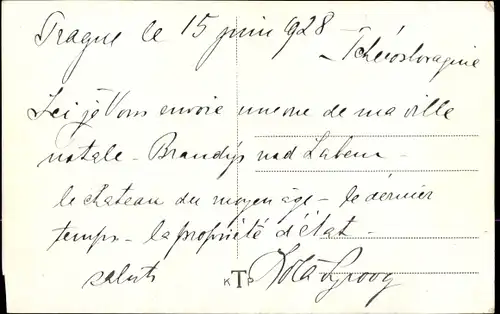 Prague le 15 juin 1928
- Tchécoslovaquie
Ici je Vous envoie une vue de ma ville
natale - Brandýs nad Labem -
le chateau du moyen âge - le dernier
temps - la propriété d'état -
saluts
K T P